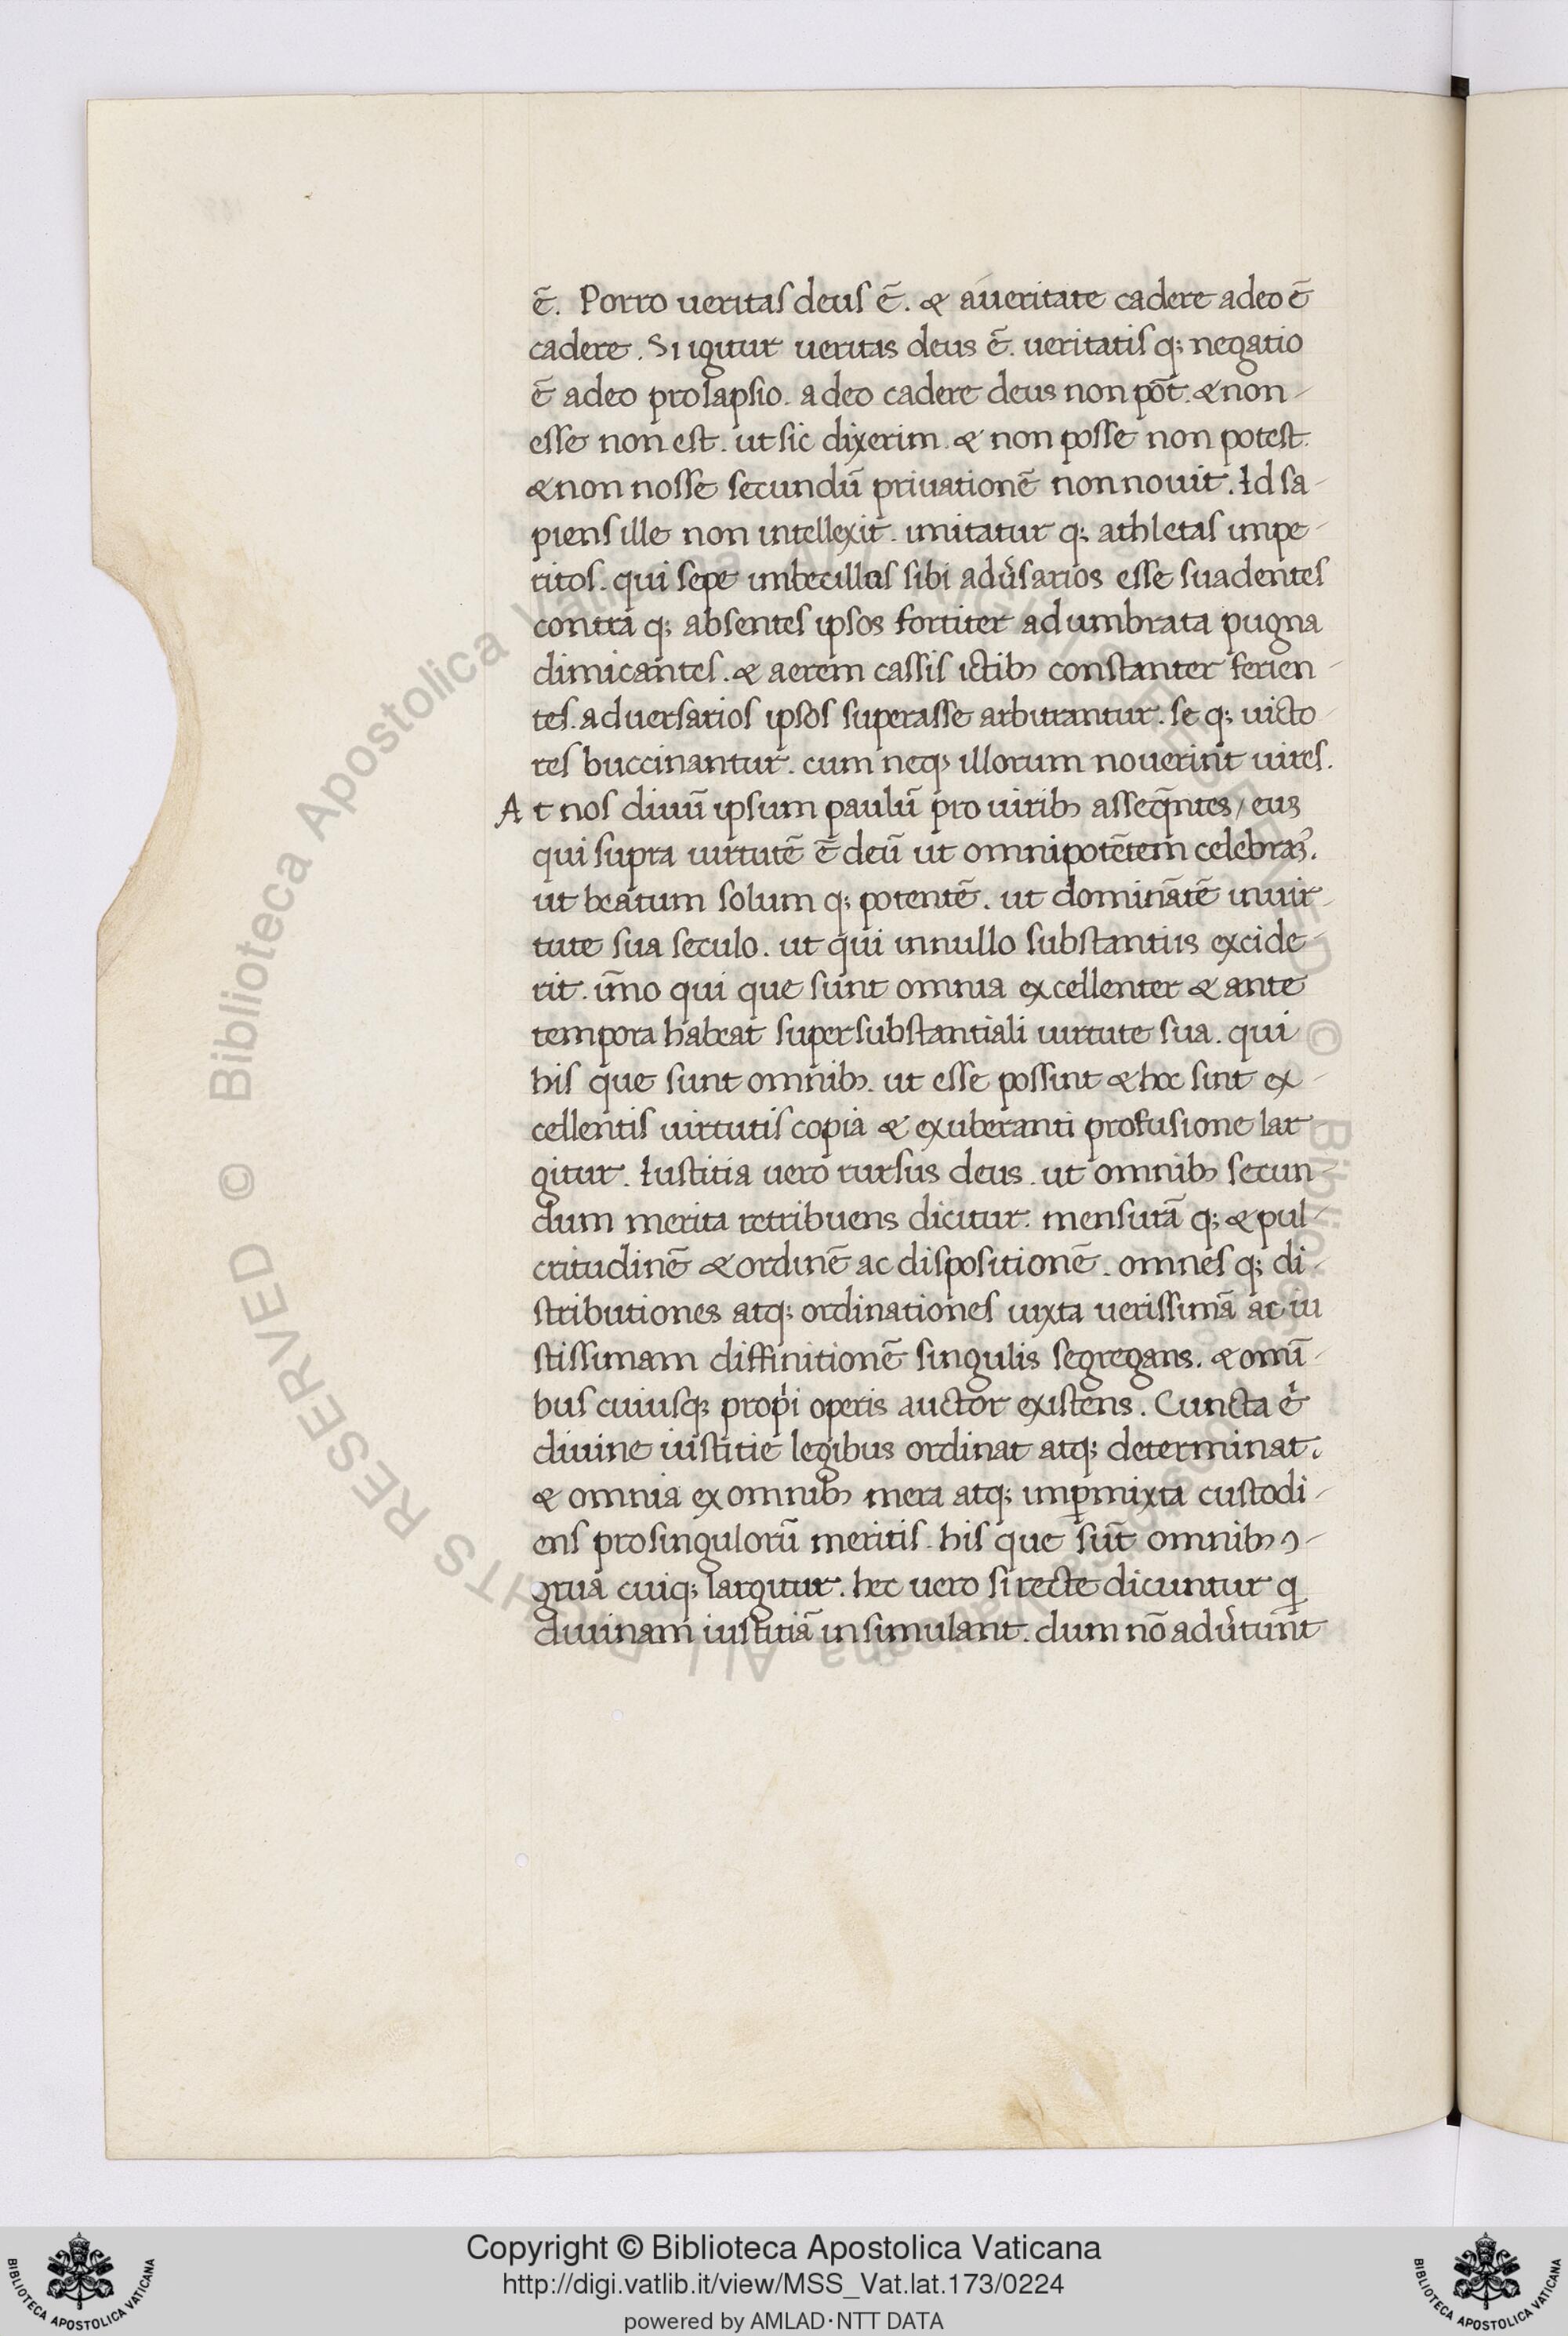 ē. Porro ueritas deus ē. & áueritate cadere adeo ē
cadere. Si igitur ueritas deus ē. ueritatis q; negatio
ē adeo prolapsio. adeo cadere deus non pōt. & non
esse non est. ut sic dixerim. & non posse non potest.
& non nosse secundū priuationē non nouit. Id sa
piens ille non intellexit. imitatur q; athletas impe
ritos. qui sepe imbecillas sibi adu̓sarios esse suadentes
contra q; absentes ipsos fortiter adumbrata pugna
dimicantes. & aerem cassis ictibꝫ constanter ferien
tes. aduersarios ipsos superasse arbitrantur. se q; uicto
res buccinantur. cum neqꝫ illorum nouerint uires.
At nos diuū ipsum paulū pro uiribꝫ asseqn̄tes / eus
qui supra uirtutē ē deū ut omnipotētem celebraꝫ̓.
ut beatum solum q; potentē. ut domināte̅ inuir
tute sua seculo. ut qui innullo substantiis excide
rit. īmo qui que sunt omnia excellenter & ante
tempora habeat supersubstantiali uirtute sua. qui
his que sunt omnibꝫ. ut esse possint & hoc sint ex
cellentis uirtutis copia & exuberanti profusione lar
gitur. Iustitia uero rursus deus. ut omnibꝫ secun
dum merita retribuens dicitur. mensurā q; & pul
critudinē & ordinē ac dispositionē. omnes q; di
stributiones atq; ordinationes iuxta uerissimā ac iu
stissimam diffinitionē singulis segregans. & omī
bus cuiusq; prop̓i operis auctor existens. Cuncta e̓
diuine iustitie legibus ordinat atq; determinat.
& omnia ex omnibꝫ mera atq; imꝑmixta custodi
ens prosingulorū meritis. his que sūt omnibꝫ ꝯ
grua cuiq; largitur. hec uero si recte dicuntur q
diuinam iustitiā insimulant. dum nō adu̓tūnt
© Biblioteca Apostolica Vaticana ALL RIGHTS RESERVED © Biblioteca Apostolica Vaticana ALL RIGHTS RESERVED
Copyright © Biblioteca Apostolica Vaticana
http://digi.vatlib.it/view/MSS_Vat.lat.173/0224
powered by AMLAD·NTT DATA
BIBLIOTECA APOSTOLICA VATICANA
BIBLIOTECA APOSTOLICA VATICANA